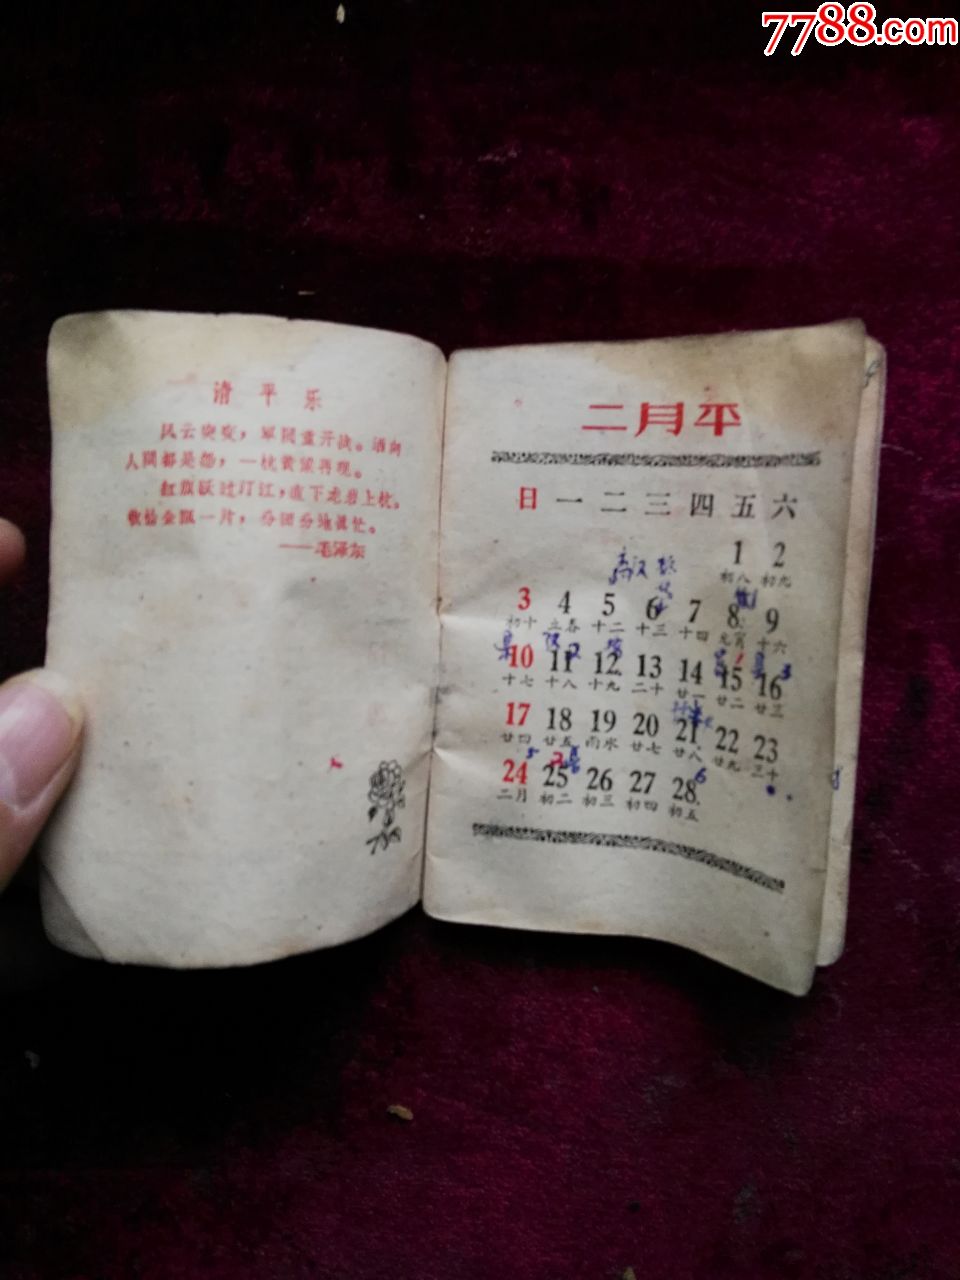 7788.com
清平乐
风云突变，军阀重开战。洒向
人间都是怨，一枕黄粱再现。
红旗跃过汀江，直下龙岩上杭。
收拾金瓯一片，分田分地真忙。
——毛泽东
二月平
日 一 二 三 四 五 六
1 2
初八 初九
3 4 5 6 7 8 9
初十 立春 十二 十三 十四 元宵 十六
10 11 12 13 14 15 16
十七 十八 十九 二十 廿一 廿二 廿三
17 18 19 20 21 22 23
廿四 廿五 雨水 廿七 廿八 廿九 三十
24 25 26 27 28
二月 初二 初三 初四 初五